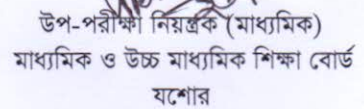 উপ-পরীক্ষা নিয়ন্ত্রক (মাধ্যমিক)
মাধ্যমিক ও উচ্চ মাধ্যমিক শিক্ষা বোর্ড
যশোর